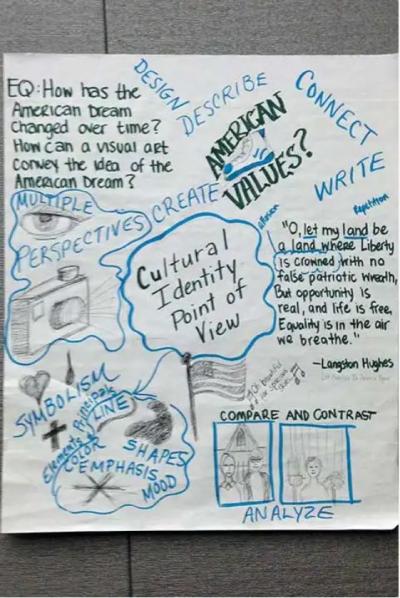 EQ: How has the
American Dream
Changed over time?
How can a visual art
convey the idea of the
American Dream?
DESIGN
DESCRIBE
CONNECT
WRITE
CREATE
AMERICAN
VALUES?
MULTIPLE
PERSPECTIVES
Cultural
Identity
Point of
View
allusion
Repetition
"O, let my land be
a land where Liberty
is crowned with no
false patriotic wreath,
But opportunity is
real, and life is free,
Equality is in the air
we breathe."
—Langston Hughes
SYMBOLISM
Elements
Principals
LINE
COLOR
SHAPES
EMPHASIS
MOOD
COMPARE AND CONTRAST
ANALYZE